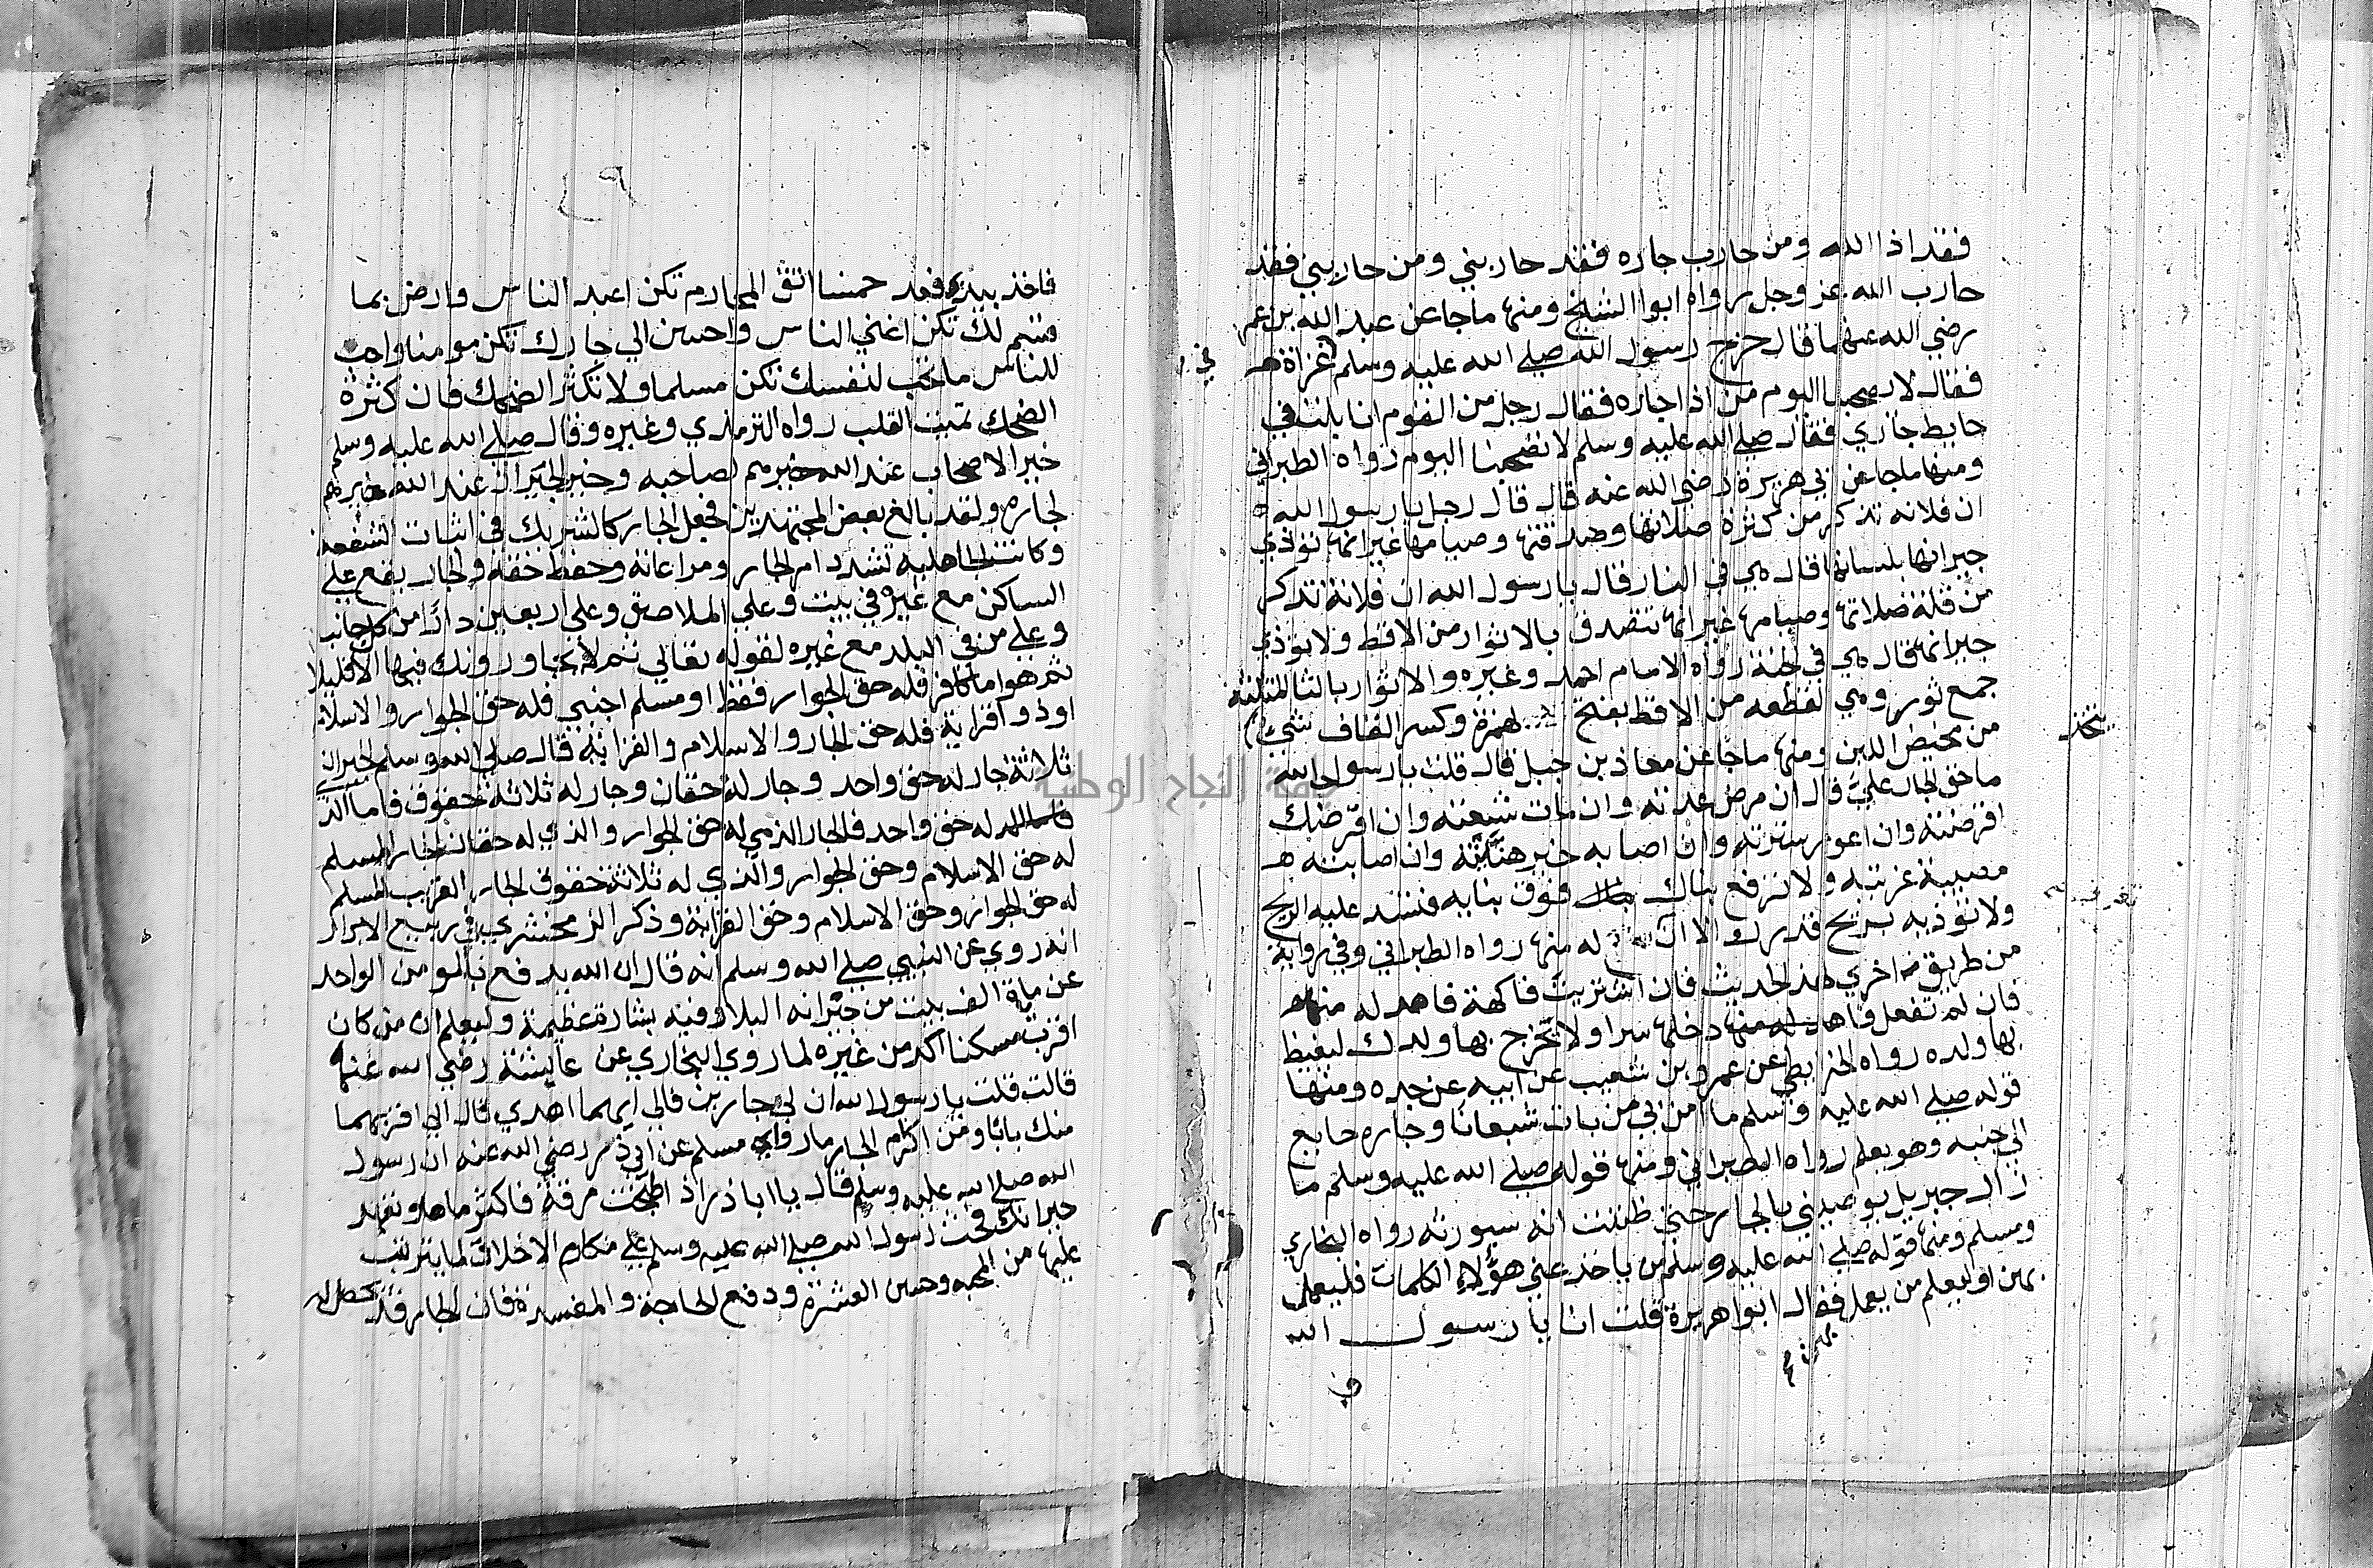 فقد اذا الله ومن حارب جاره فقد حاربني ومن حاربني فقد
حارب الله عز وجل رواه ابوا الشيخ ومنها ماجا عن عبد الله بن عمر
رضي الله عنهما قال خرج رسول الله صلي الله عليه وسلم غزاة
في
فقال لا يصحبنا اليوم من اذا جاره فقال رجل من القوم انا بلت في
حايط جاري فقال صلي الله عليه وسلم لا تصحبنا اليوم رواه الطبراني
ومنها ماجا عن ابي هريرة رضي الله عنه قال قال رجل يا رسول الله
ان فلانه تذكر من كثرة صلاتها وصدقتها وصيامها غير انها تؤذي
جيرانها بلسانها قال هي في النار قال يا رسول الله ان فلانة تذكر
من قلة صلاتها وصيامها غير انها تتصدق بالاثوار من الاقط ولا توذي
جيرانها قال هي في الجنة رواه الامام احمد وغيره والاثوار بالثا المثلثه
جمع ثور وهي القطعه من الاقط بفتح الهمزة وكسر القاف شي
يتخذ
من مخيض اللبن ومنها ماجا عن معاذ بن جبل قال قلت يا رسول الله
ما حق الجار علي قال ان مرض عدته وان مات شيعته وان اقرضك
اقرضته وان اعور سترته وان اصابه خير هنيته وان اصابته
مصيبة عزيته ولا ترفع بناك فوق بنايه فتسد عليه الريح
ولا توذيه بريح قدرك الا ان له منها رواه الطبراني وفي رواية
تغرف
من طريق اخري هذ الحديث فان اشتريت فاكهة فاهد له منها
فان لم تفعل فادخلها سرا ولا تخرج بها ولدك ليغيظ
بها ولده رواه الخرايطي عن عمرو بن شعيب عن ابيه عن جده ومنها
قوله صلي الله عليه وسلم ما امن بي من بات شبعانا وجاره جايع
الي جنبه وهو يعلم رواه الطبراني ومنها قوله صلي الله عليه وسلم ما
زال جبريل يوصيني بالجار حتي ظننت انه سيورثه رواه البخاري
ومسلم ومنها قوله صلي الله عليه وسلم من ياخذ عني هؤلاء الكلمات فليعمل
بهن او ليعلم من يعمل فقال ابوا هريرة قلت انا يا رسول الله
بهن
٤٩
فاخذ بيدي فعد خمسا اتق المحارم تكن اعبد الناس وارض بما
قسم لك تكن اغني الناس واحسن الي جارك تكن مومنا واحب
للناس ما تحب لنفسك تكن مسلما ولا تكثر الضحك فان كثرة
الضحك تميت القلب رواه الترمذي وغيره وقال صلي الله عليه وسلم
خير الاصحاب عند الله خيرهم لصاحبه وخير الجيران عند الله خيرهم
لجاره ولقد بالغ بعض المجتهدين فجعل الجار كالشريك في اثبات الشفعه
وكانت الجاهليه تشدد امر الجار ومراعاته وحفظ حقه والجار يقع علي
الساكن مع غيره في بيت وعلي الملاصق وعلي اربعين دارا من كل جانب
وعلي من في البلد مع غيره لقوله تعالي ثم لا يجاورونك فيها الا قليلا
ثم هو اما كافر فله حق الجوار فقط او مسلم اجنبي فله حق الجوار والاسلام
او ذو اقرابة فله حق الجار والاسلام والقرابة قال صلي الله وسلم الجيران
ثلاثة جار له حق واحد وجار له حقان وجار له ثلاثة حقوق فاما الذي
له حق واحد فالجار الذمي له حق الجوار والذي له حقان الجار المسلم
له حق الاسلام وحق الجوار والذي له ثلاثة حقوق الجار القريب المسلم
له حق الجوار وحق الاسلام وحق القرابة وذكر الزمخشري في ربيع الابرار
انه روي عن النبي صلي الله وسلم انه قال ان الله يدفع بالمومن الواحد
عن ماية الف بيت من جيرانه البلا وفيه بشارة عظيمة وليعلم ان من كان
اقرب مسكنا اكد من غيره لما روي البخاري عن عايشة رضي الله عنها
قالت قلت يا رسول الله ان لي جارين فالي ايهما اهدي قال الي اقربهما
منك بابا ومن اكرم الجار ما رواه مسلم عن ابي ذر رضي الله عنه ان رسول
الله صلي الله عليه وسلم قال يا ابا ذر اذ اطبخت مرقة فاكثر ماها وتعهد
جيرانك فحث رسول الله صلي الله عليه وسلم علي مكارم الاخلاق لما يترتب
عليها من المحبه وحسن العشرة ودفع الحاجة والمفسدة فان الجار قد يحصل له
النجاح الوطنية